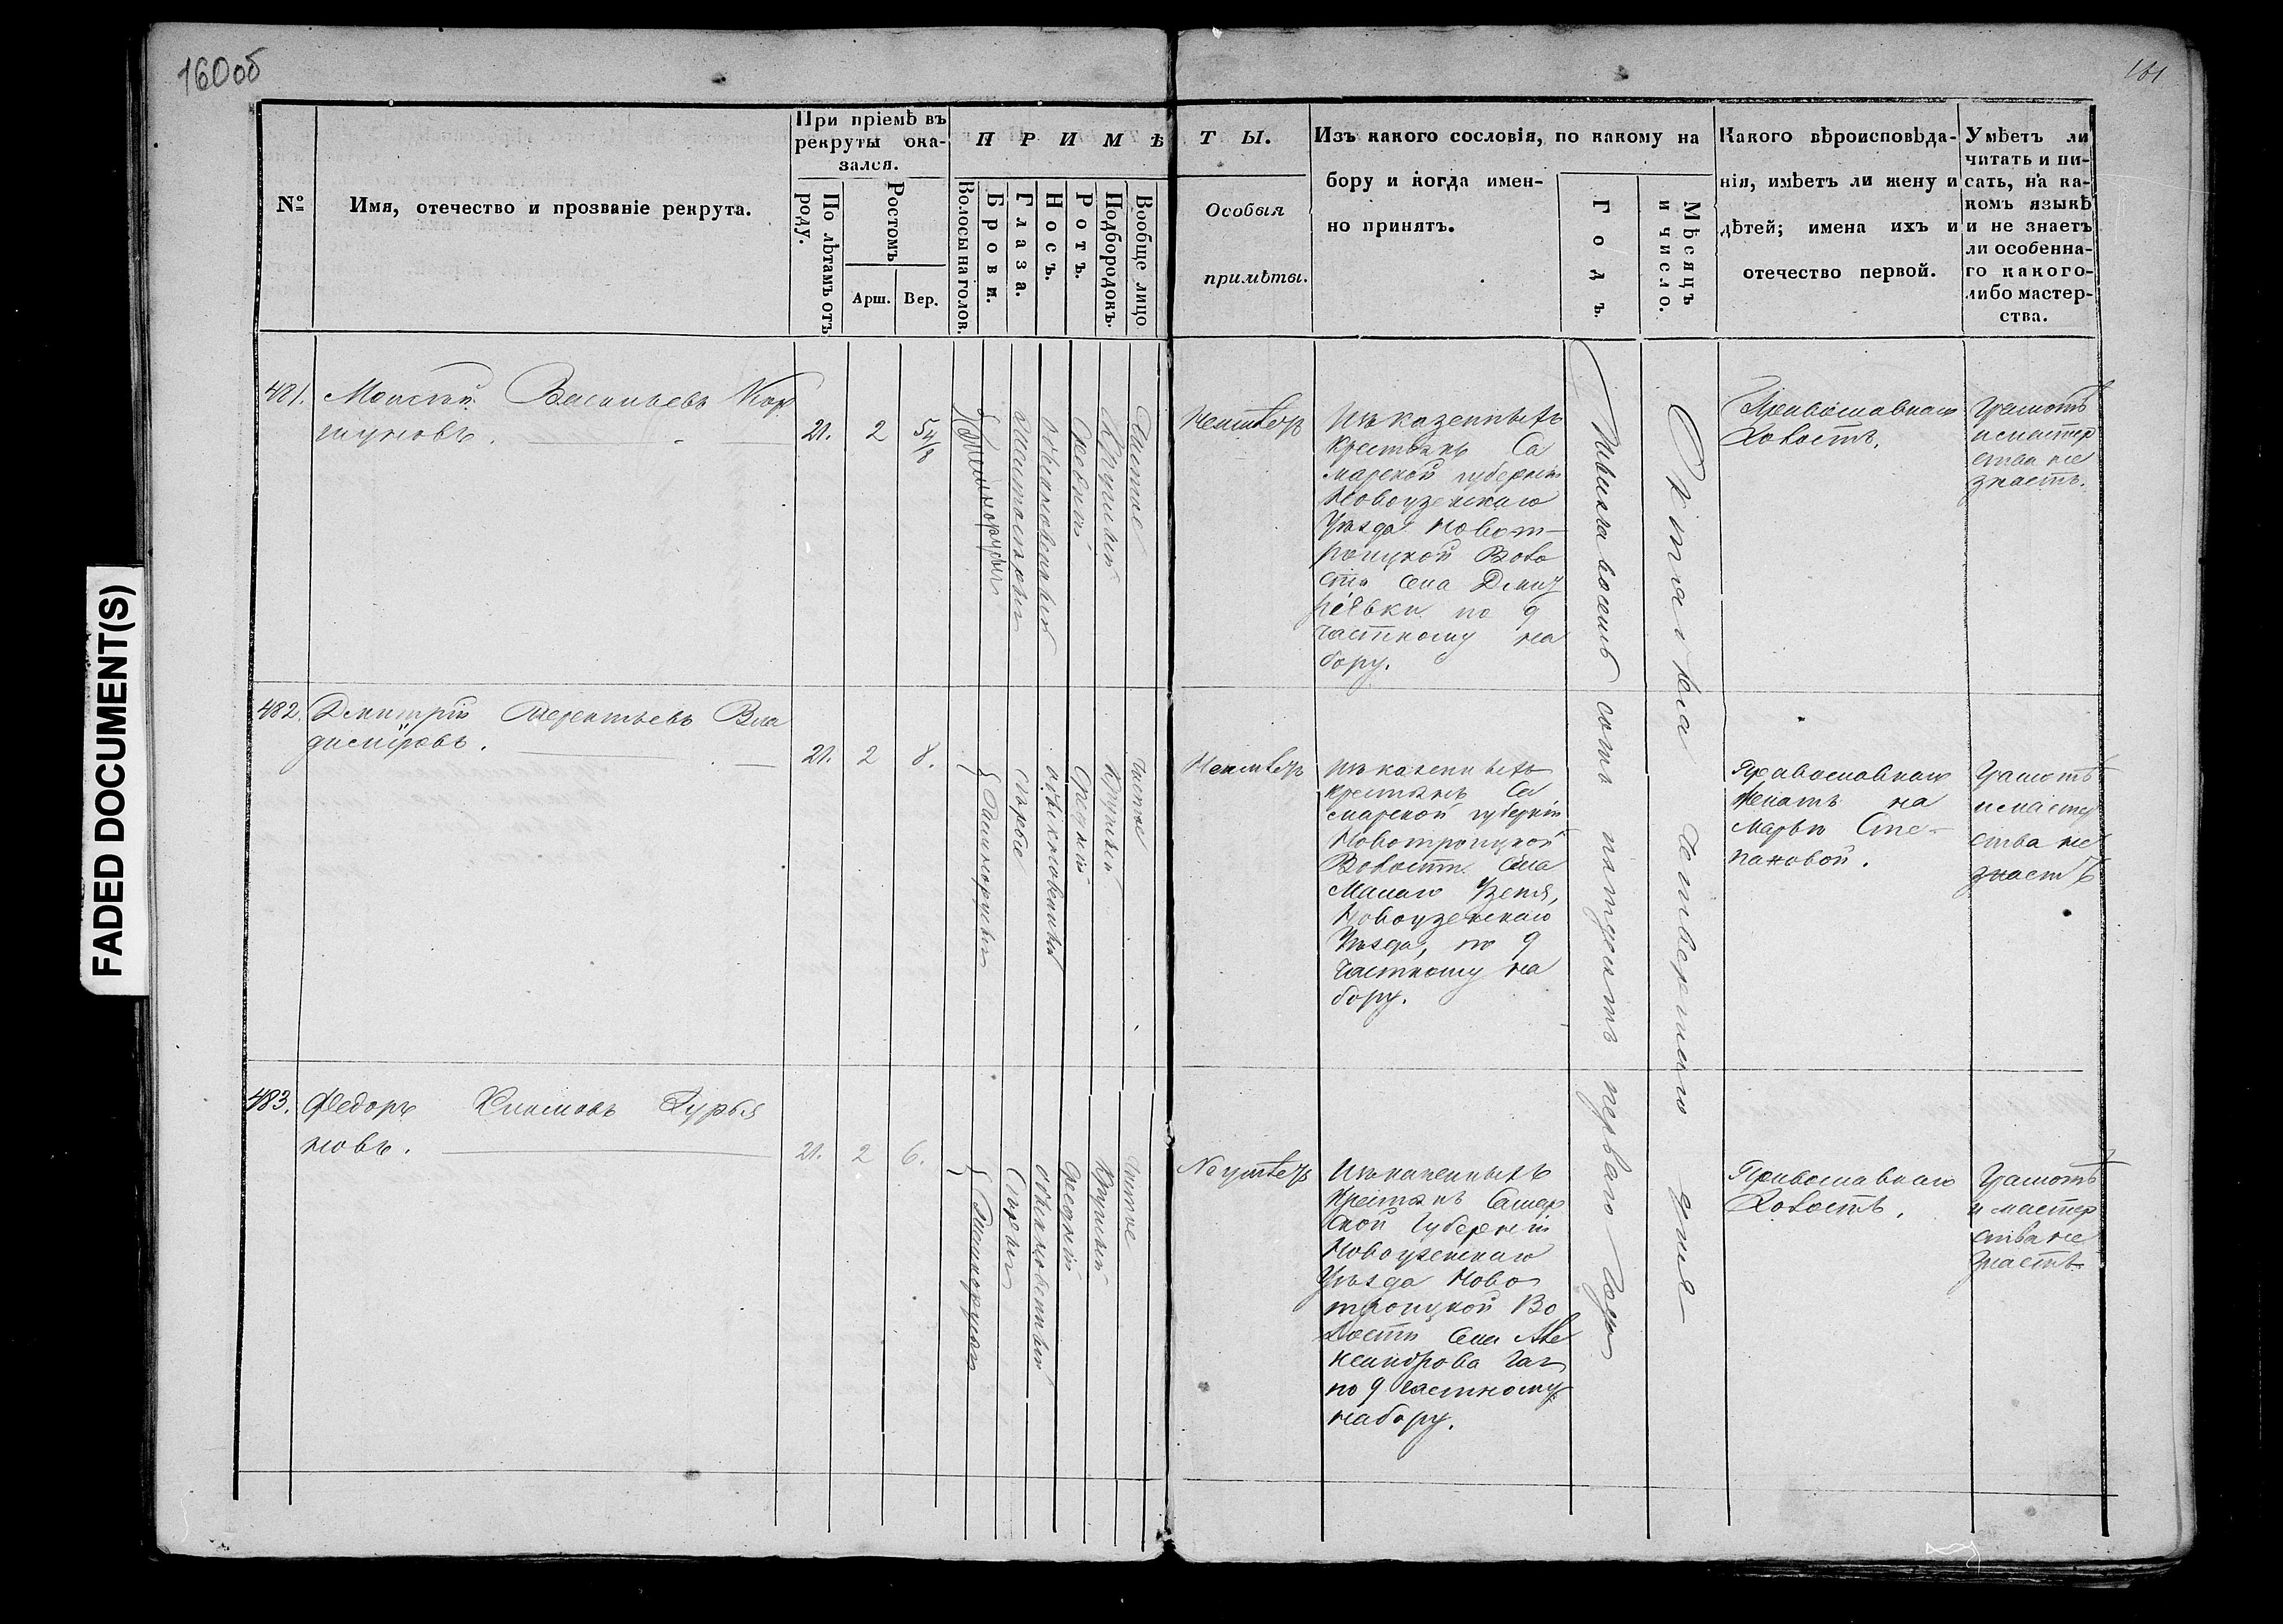 160об
161
FADED DOCUMENT(S)
№
Имя, отечество и прозваніе рекрута.
При пріемѣ въ
рекруты ока-
зался.
По лѣтамъ отъ
роду.
Ростомъ
Арш.
Вер.
ПРИМѢ
Волосы на голов.
Брови.
Глаза.
Носъ.
Ротъ.
Подбородокъ.
Вообще лицо
ТЫ.
Особыя
примѣты.
Изъ какого сословія, по какому на
бору и когда имен-
но принятъ.
Годъ.
Мѣсяцъ
и число.
Какого вѣроисповѣда-
нія, имѣетъ ли жену и
дѣтей; имена ихъ и
отечество первой.
Умѣетъ ли
читать и пи-
сать, на ка-
комъ языкѣ
и не знаетъ
ли особенна-
го какого-
либо мастер-
ства.
481.
Моисей Васильевъ Кор
шуновъ.
21.
2
5 4/8
Темнорусыя
Желтосѣрыя
обыкновенный
Средній
Круглый
Чистое
Неимѣетъ
Изъ казенныхъ
крестьянъ Са
марской губерніи
Новоузенскаго
Уѣзда Новот-
роицкой Воло
сти Села Дмит
ріевки по 9
частному на
бору.
Тысяча восемь сотъ пятдесятъ перваго года
Октября четвертаго дня
Православнаго
Холостъ.
Грамотѣ
и мастер
ства не
знаетъ.
482.
Дмитрій Терентьевъ Вла
диміровъ.
21.
2
8.
Темнорусыя
Сѣрые
обыкновенный
Средній
Круглый
Чистое
Неимѣетъ
Изъ казенныхъ
крестьянъ Са
марской губерніи
Новотроицкой
Волости Села
Малаго Узеня,
Новоузенскаго
Уѣзда, по 9
частному на
бору.
Православнаго
женатъ на
Марьи Сте-
пановой.
Грамотѣ
и мастер
ства не
знаетъ
483.
Федоръ Климовъ Курбя
новъ.
21.
2
6.
Темнорусыя
Сѣрыя
обыкновенный
Средній
Круглый
Чистое
Неимѣетъ
Изъ казенныхъ
Крестьянъ Самар
ской Губерніи
Новоузенскаго
Уѣзда Ново
троицкой Во
лости Села Але
ксандрова Гая
по 9 частному
набору.
Православнаго
Холостъ.
Грамотѣ
и мастер
ства не
знаетъ